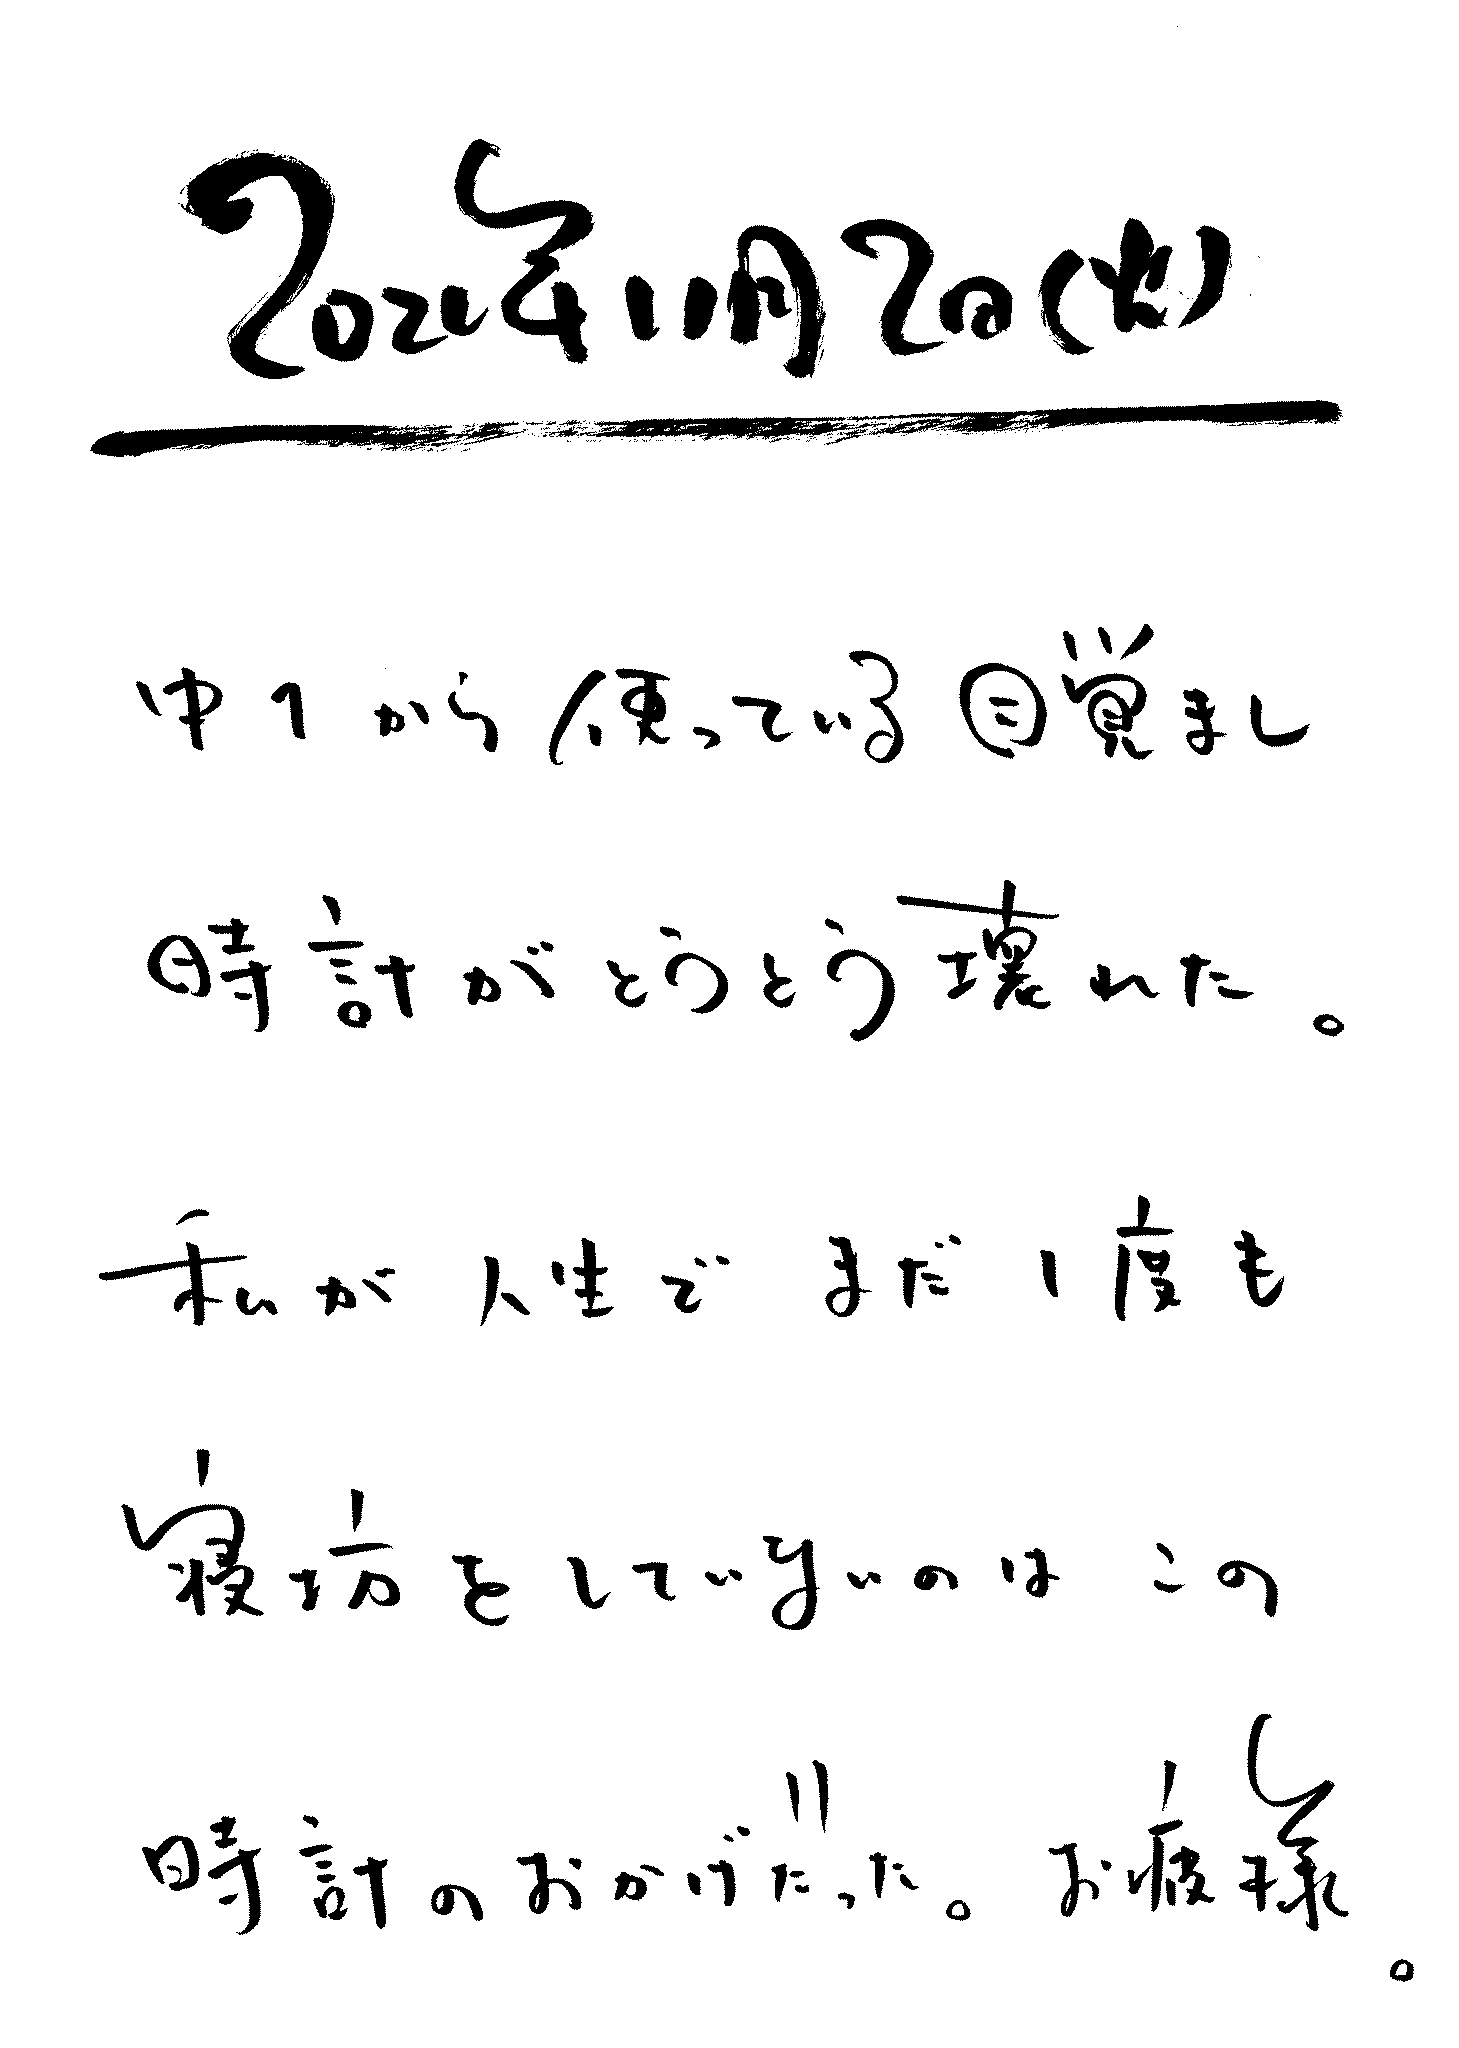 2021年11月2日(火)
中1から使っている目覚まし
時計がとうとう壊れた。
私が人生でまだ1度も
寝坊をしていないのはこの
時計のおかげだった。お疲様。